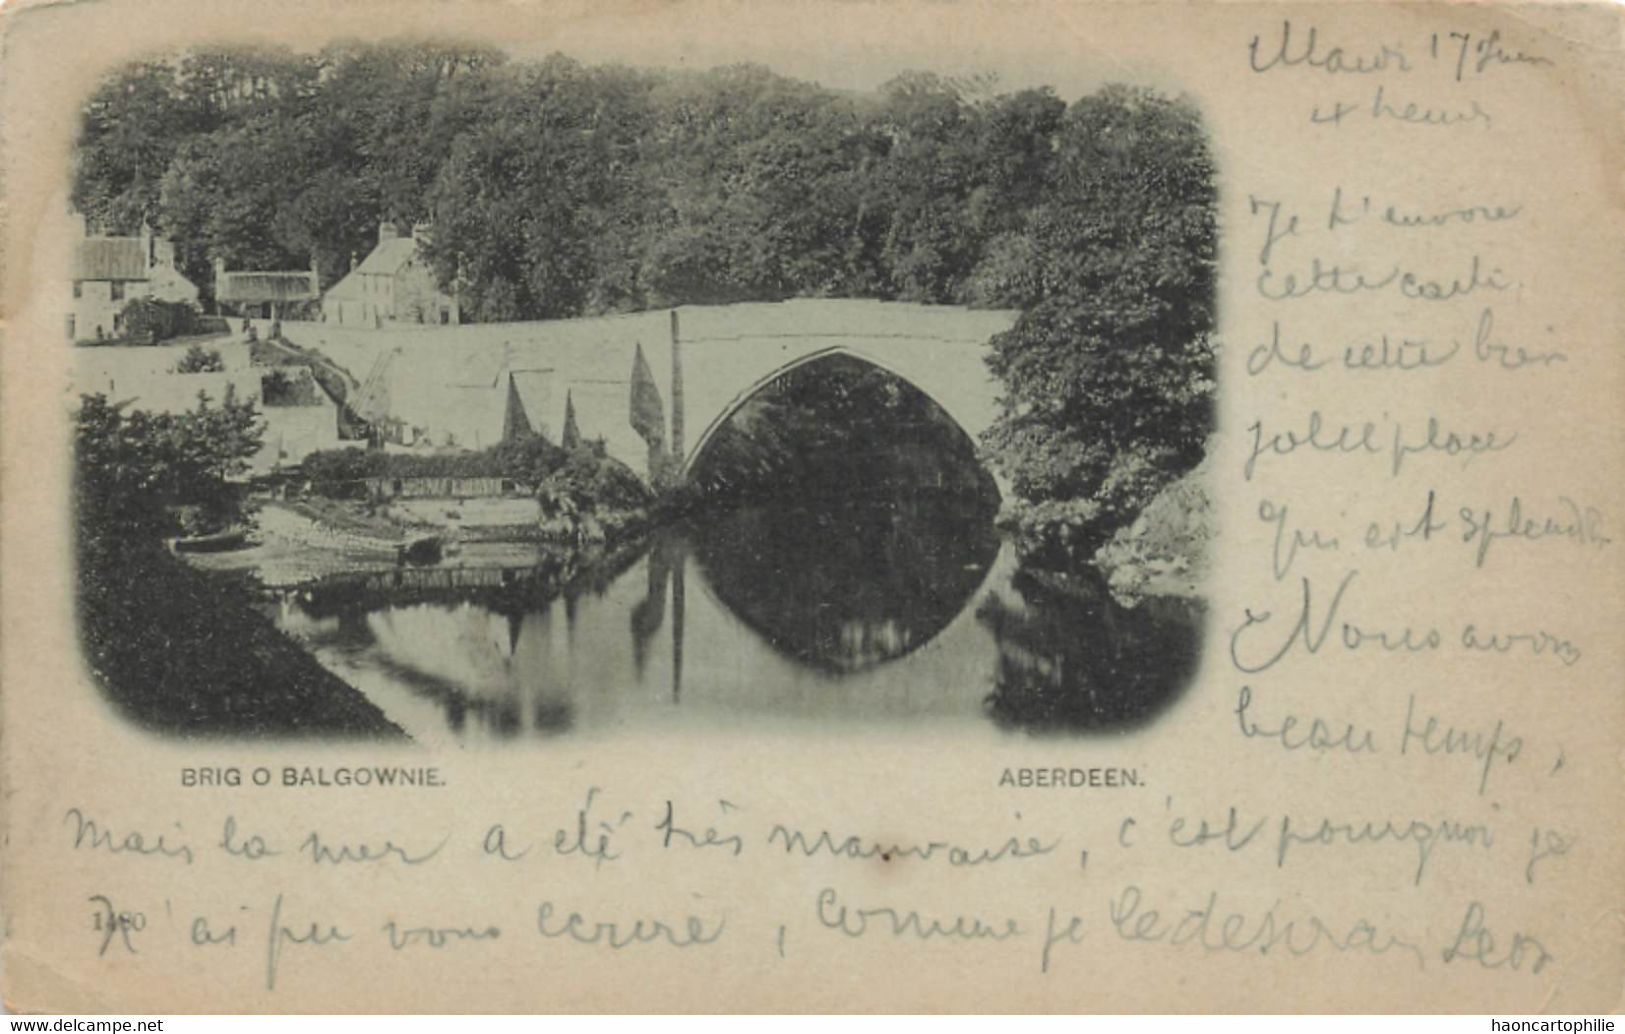 Mardi 17 Juin
4 heures
Je t'envoie
cette carte
de cette bien
jolie place
qui est splendide
Nous avons
beau temps,
BRIG O BALGOWNIE.
ABERDEEN.
mais la mer a été très mauvaise, c'est pourquoi je
n'ai pu vous ecrire, comme je le desirais Leon
1480
www.delcampe.net
haoncartophilie